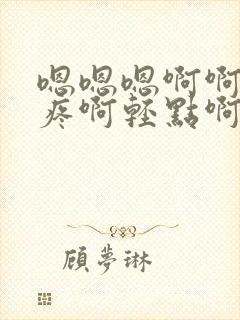 嗯嗯嗯啊啊
疼啊轻點啊
顧夢琳